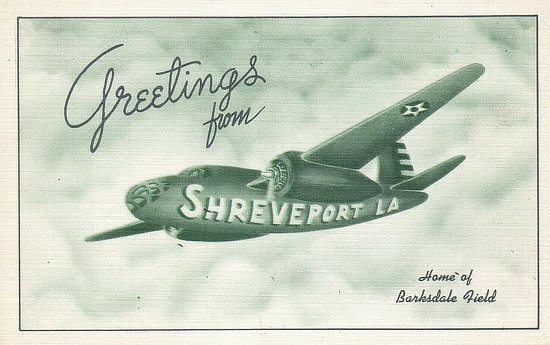 Greetings
from
SHREVEPORT LA
Home of
Barksdale Field